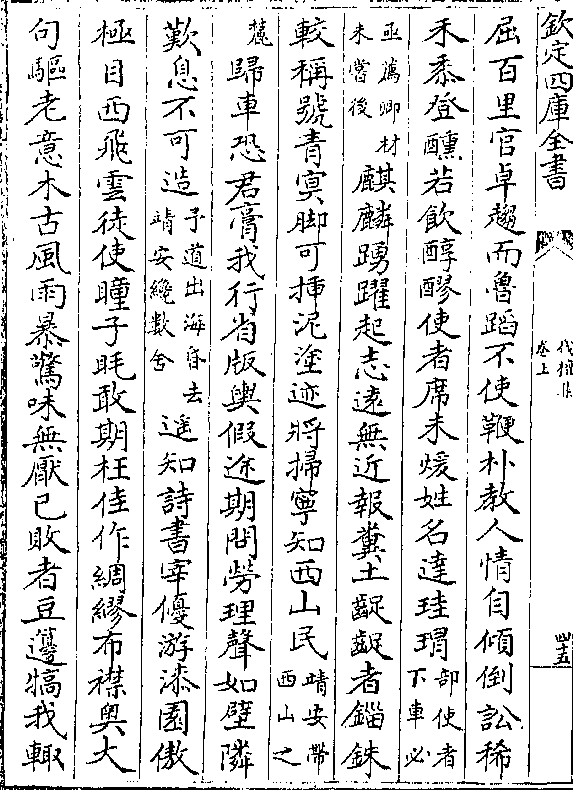 欽定四庫全書
伐檀集
卷上
四五
屈百里官卓趨而魯蹈不使鞭朴教人情自傾倒訟稀
禾黍登醺若飲醇醪使者席未煖姓名達珪瑁部使者下車必
亟薦卿材未嘗後麒麟踴躍起志遠無近報糞土齪齪者錙銖
較稱號青冥脚可揷泥塗迹將掃寧知西山民靖安帶西山之
麓歸車恐君膏我行省版輿假途期問勞理聲如壁隣
歎息不可造予道出海昏去靖安纔數舍遥知詩書宰優游漆園傲
極目西飛雲徒使瞳子眊敢期枉佳作綢繆布襟奥大
句驅老意木古風雨暴驚味無厭已敗者豆邊犒我輙